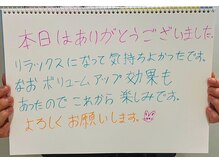 本日はありがとうございました。
リラックスになって気持ちよかったです。
なおボリュームアップ効果も
あったのでこれから楽しみです。
よろしくお願いします。